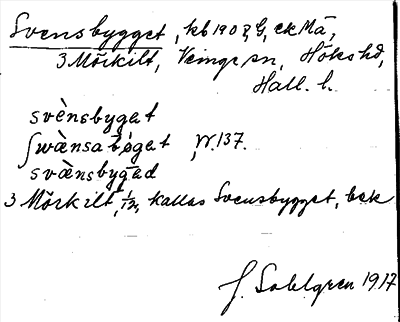 Svensbygget, kb 1908, G, ek Mä,
3 Mörkilt, Veinge sn, Höks hd,
Hall. l.
svènsbyget
swænsabøget W.137.
svænsbygəd
3 Mörkilt, 1/2, kallas Svensbygget, bek
J. Sahlgren 1917